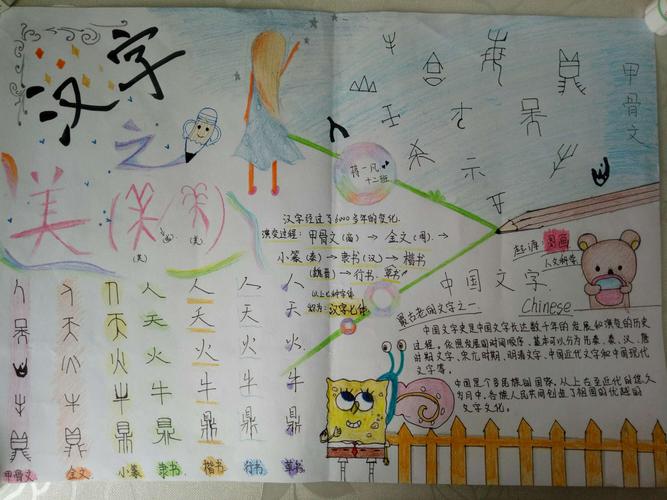 汉字
之
美
甲骨文
蒋一凡
十二班
汉字经过了6000多年的变化.
演变过程:甲骨文(商)→金文(周).→
小篆(秦)→隶书(汉)→楷书
(魏晋)→行书.草书
以上七种字体
称为:汉字七体
起源:图画
人文科学
中国文字
Chinese
最古老的文字之一
中国文字史是中国文字长达数十年的发展和演变的历史
过程,依照发展的时间顺序,基本可以分为先秦、秦、汉、唐
时期文字,宋元时期,明清文字、中国近代文字和中国现代
文字等。
中国是个多民族的国家,从上古至近代的悠久
岁月中,各族人民共同创造了祖国的优越的
文字文化。
人 人 人 人 人 人 人
天 天 天 天 天 天 天
火 火 火 火 火 火 火
牛 牛 牛 牛 牛 牛 牛
鼎 鼎 鼎 鼎 鼎 鼎 鼎
甲骨文 金文 小篆 隶书 楷书 行书 草书